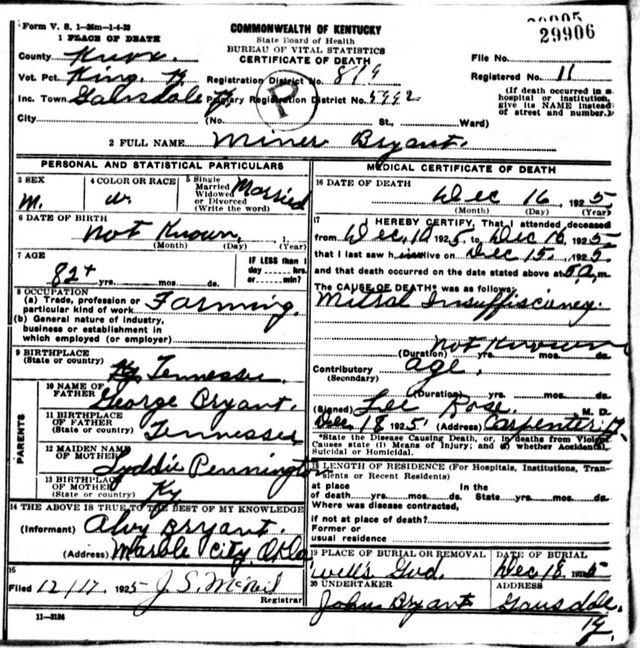 Form V. S. 1-35m-1-4-23
29905
29906
1 PLACE OF DEATH
COMMONWEALTH OF KENTUCKY
State Board of Health
BUREAU OF VITAL STATISTICS
CERTIFICATE OF DEATH
County Knox.
File No.
Vot. Pct. King, Ky Registration District No. 819
Registered No. 11
Inc. Town Gausdale Ky Primary Registration District No. 5992
P
(If death occurred in a hospital or institution, give its NAME instead of street and number.)
City (No. St., Ward)
2 FULL NAME Miner Bryant.
PERSONAL AND STATISTICAL PARTICULARS
3 SEX M.
4 COLOR OR RACE W.
5 Single Married Widowed or Divorced (Write the word) Married
6 DATE OF BIRTH
Not Known, 1
(Month) (Day) (Year)
7 AGE
82+ yrs. mos. ds.
IF LESS than 1 day hrs. or min.?
8 OCCUPATION
(a) Trade, profession or particular kind of work Farming.
(b) General nature of industry, business or establishment in which employed (or employer)
9 BIRTHPLACE
(State or country) Ky Tennessee.
PARENTS
10 NAME OF FATHER George Bryant.
11 BIRTHPLACE OF FATHER (State or country) Tennessee
12 MAIDEN NAME OF MOTHER Lyddie Pennington
13 BIRTHPLACE OF MOTHER (State or country) Ky
14 THE ABOVE IS TRUE TO THE BEST OF MY KNOWLEDGE
(Informant) Alvy Bryant.
(Address) Marble City, Okla
15
Filed 12/17, 1925 J. S. McNeil
Registrar
11-3184
MEDICAL CERTIFICATE OF DEATH
16 DATE OF DEATH
Dec 16, 1925
(Month) (Day) (Year)
17 I HEREBY CERTIFY, That I attended deceased
from Dec, 10 1925, to Dec 16, 1925
that I last saw h im alive on Dec 15, 1925
and that death occurred on the date stated above at 5 a.m.
The CAUSE OF DEATH* was as follows:
Mitral Insufficiency.
Not Known
(Duration) yrs. mos. ds.
Contributory Age.
(Secondary)
(Duration) yrs. mos. ds.
(Signed) Lee Rose. M. D.
Dec, 18 1925 (Address) Carpenter, Ky.
*State the Disease Causing Death, or, in deaths from Violent Causes state (1) Means of Injury; and (2) whether Accidental, Suicidal or Homicidal.
18 LENGTH OF RESIDENCE (For Hospitals, Institutions, Transients or Recent Residents)
at place of death yrs. mos. ds. In the State yrs. mos. ds.
Where was disease contracted,
if not at place of death?
Former or usual residence
19 PLACE OF BURIAL OR REMOVAL
Wells Gvd.
DATE OF BURIAL
Dec 18, 1925
20 UNDERTAKER
John Bryant
ADDRESS
Gausdale, Ky.